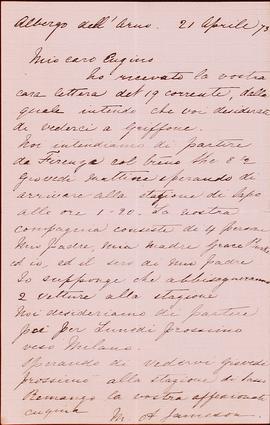 Albergo dell' Arno. 21 Aprile 73
Mio caro Cugino
ho recevato la vostra
cara lettera del 19 corrente, dalla
quale intendo che voi desiderate
di vederci a Griffone.
Noi intendiamo di partire
da Firenze col treno che 8
Giovedi mattina sperando di
arrivare alla stazione di
alle ore 1-20. La nostra
compagnia consiste di 4 persone
Mio Padre, mia madre Grace
ed io, ed il servo di mio Padre
Io suppongo che abbisogneremo
2 vetture alla stazione
Noi desideriamo di partire
poi per Lunedi prossimo
verso Milano.
Sperando di vedervi Giovedi
prossimo alla stazione di
Remango la vostra affezionata
cugina
M. A Jameson.